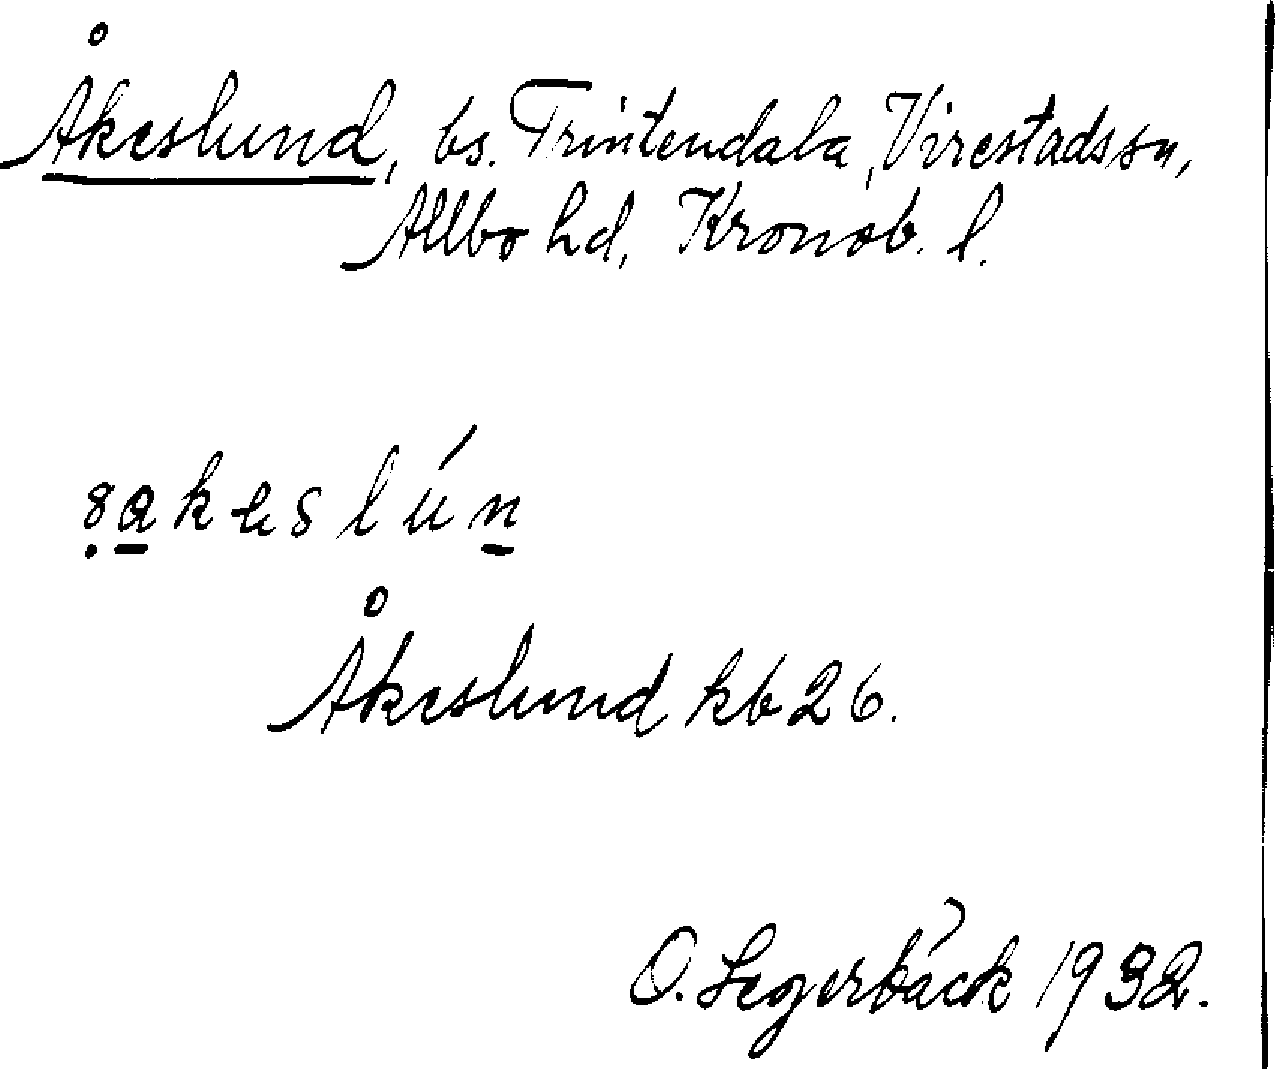 Åkeslund, bs. Trintendala, Virestads sn,
Allbo hd, Kronob. l.
Åkeslund kb 26.
O. Segerbäck 1932.